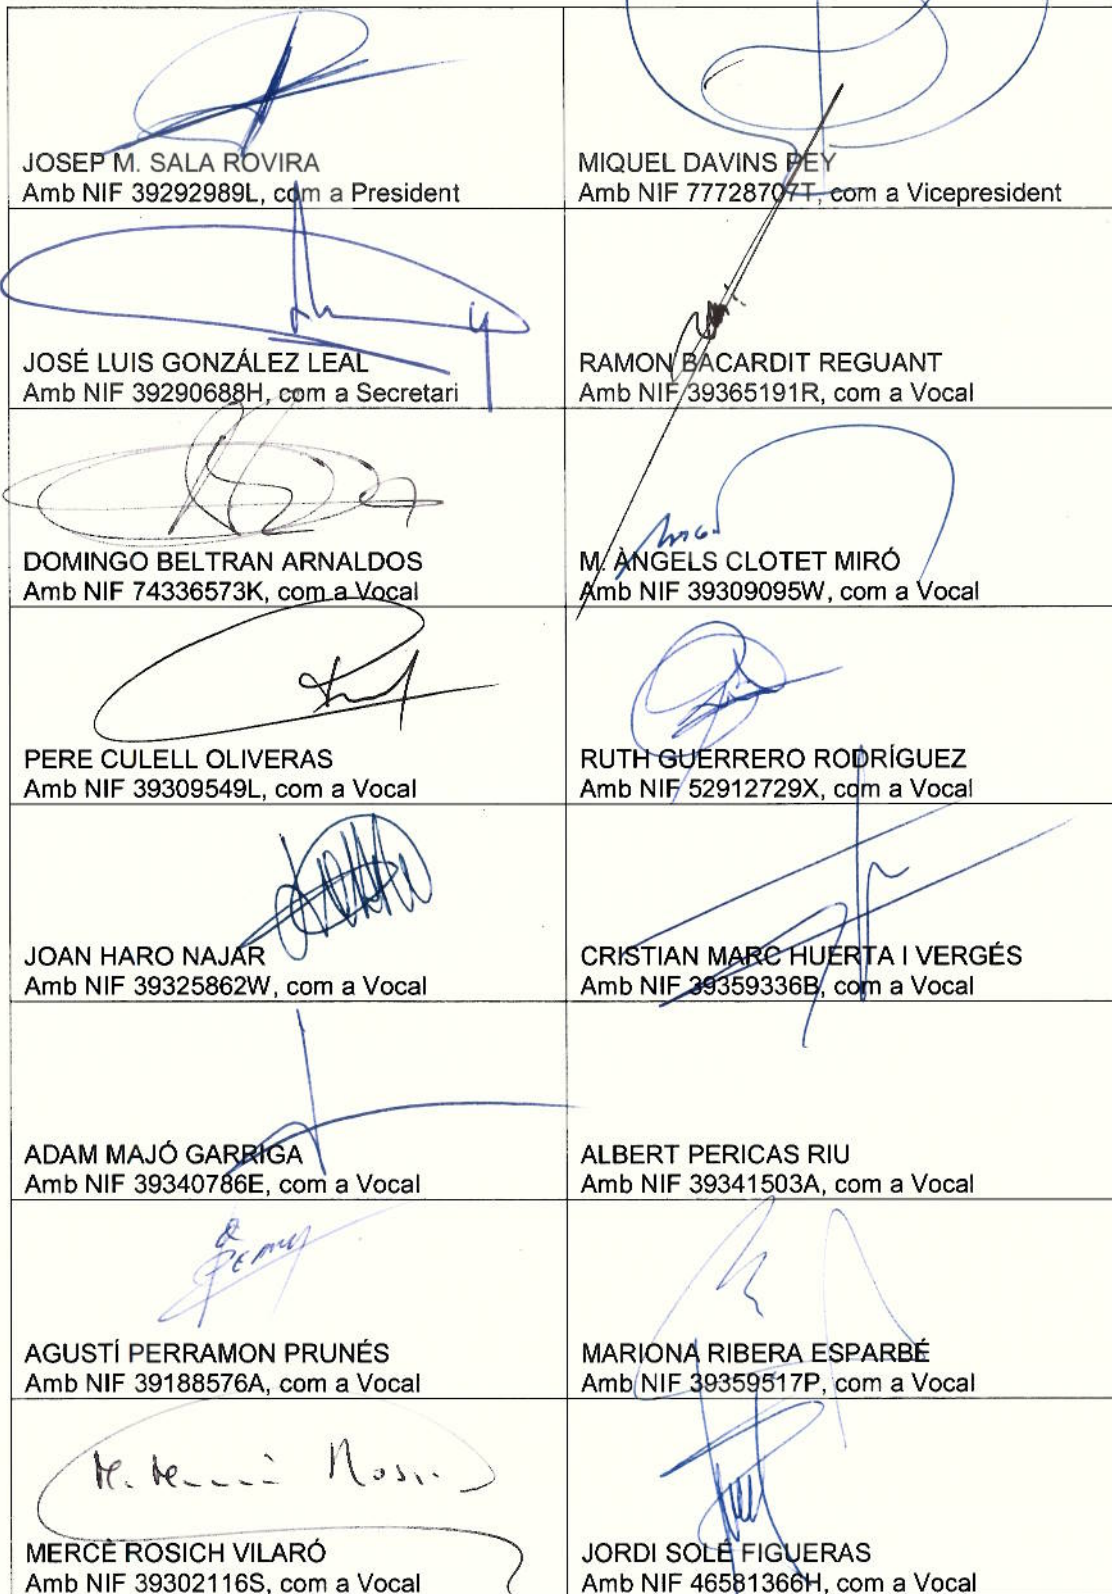 JOSEP M. SALA ROVIRA
Amb NIF 39292989L, com a President
MIQUEL DAVINS PEY
Amb NIF 77728707T, com a Vicepresident
JOSÉ LUIS GONZÁLEZ LEAL
Amb NIF 39290688H, com a Secretari
RAMON BACARDIT REGUANT
Amb NIF 39365191R, com a Vocal
DOMINGO BELTRAN ARNALDOS
Amb NIF 74336573K, com a Vocal
M. ÀNGELS CLOTET MIRÓ
Amb NIF 39309095W, com a Vocal
PERE CULELL OLIVERAS
Amb NIF 39309549L, com a Vocal
RUTH GUERRERO RODRÍGUEZ
Amb NIF 52912729X, com a Vocal
JOAN HARO NAJAR
Amb NIF 39325862W, com a Vocal
CRISTIAN MARC HUERTA I VERGÉS
Amb NIF 39359336B, com a Vocal
ADAM MAJÓ GARRIGA
Amb NIF 39340786E, com a Vocal
ALBERT PERICAS RIU
Amb NIF 39341503A, com a Vocal
AGUSTÍ PERRAMON PRUNÉS
Amb NIF 39188576A, com a Vocal
MARIONA RIBERA ESPARBÉ
Amb NIF 39359517P, com a Vocal
MERCÈ ROSICH VILARÓ
Amb NIF 39302116S, com a Vocal
JORDI SOLÉ FIGUERAS
Amb NIF 46581366H, com a Vocal